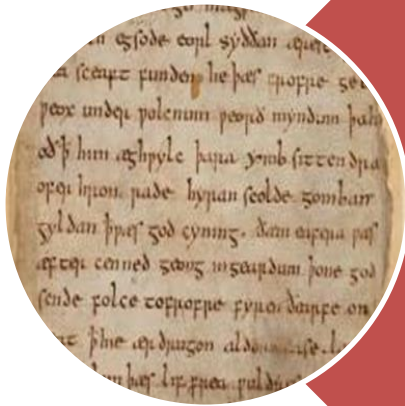 egsode eorl syððan ærest
funden he þæs frofre
ƿeox under ƿolcnum ƿeorð myndum þah
oð ꝥ him æghƿylc þara ymb sittendra
ofer hron rade hyran scolde gomban
gyldan ꝥ ƿæs god cyning. ðæm eafera ƿæs
æfter cenned geong in geardum þone god
sende folce tofrofre fyren ðearfe on
ꝥ hie ær drugon
him þæs lif frea